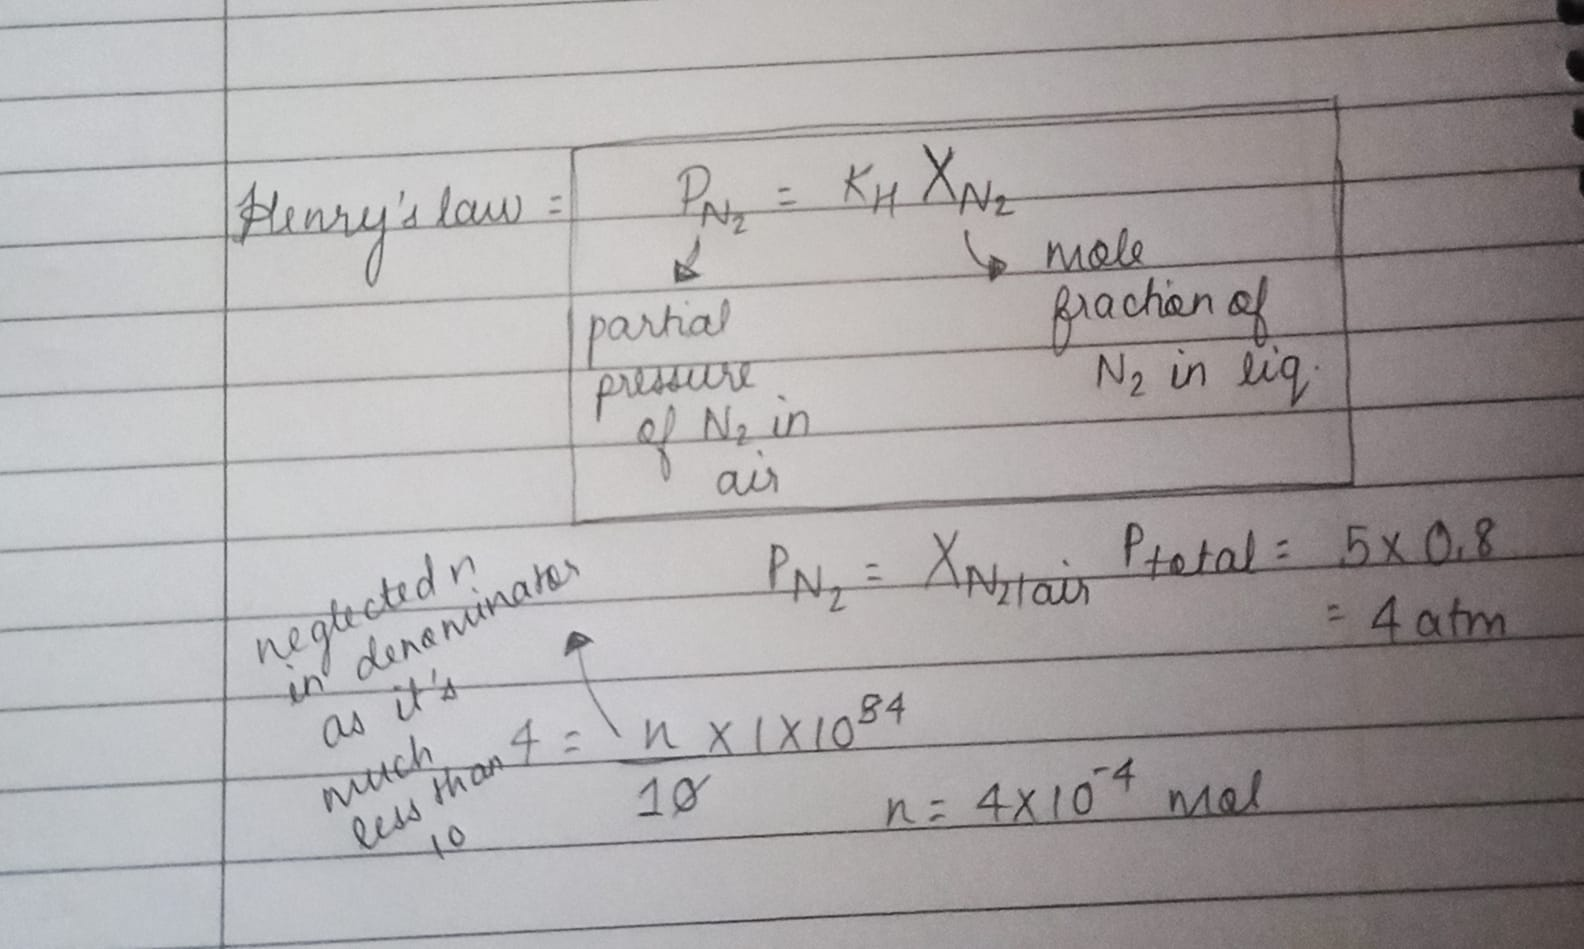 Henry's law = P_N₂ = K_H X_N₂
partial
pressure
of N₂ in
air
mole
fraction of
N₂ in liq.
P_N₂ = X_N₂/air P_total = 5 x 0.8
= 4 atm
neglected n
in denominator
as it's
much
less than
10
4 = n x 1 x 10⁸⁴ / 10
n = 4 x 10⁻⁴ mol